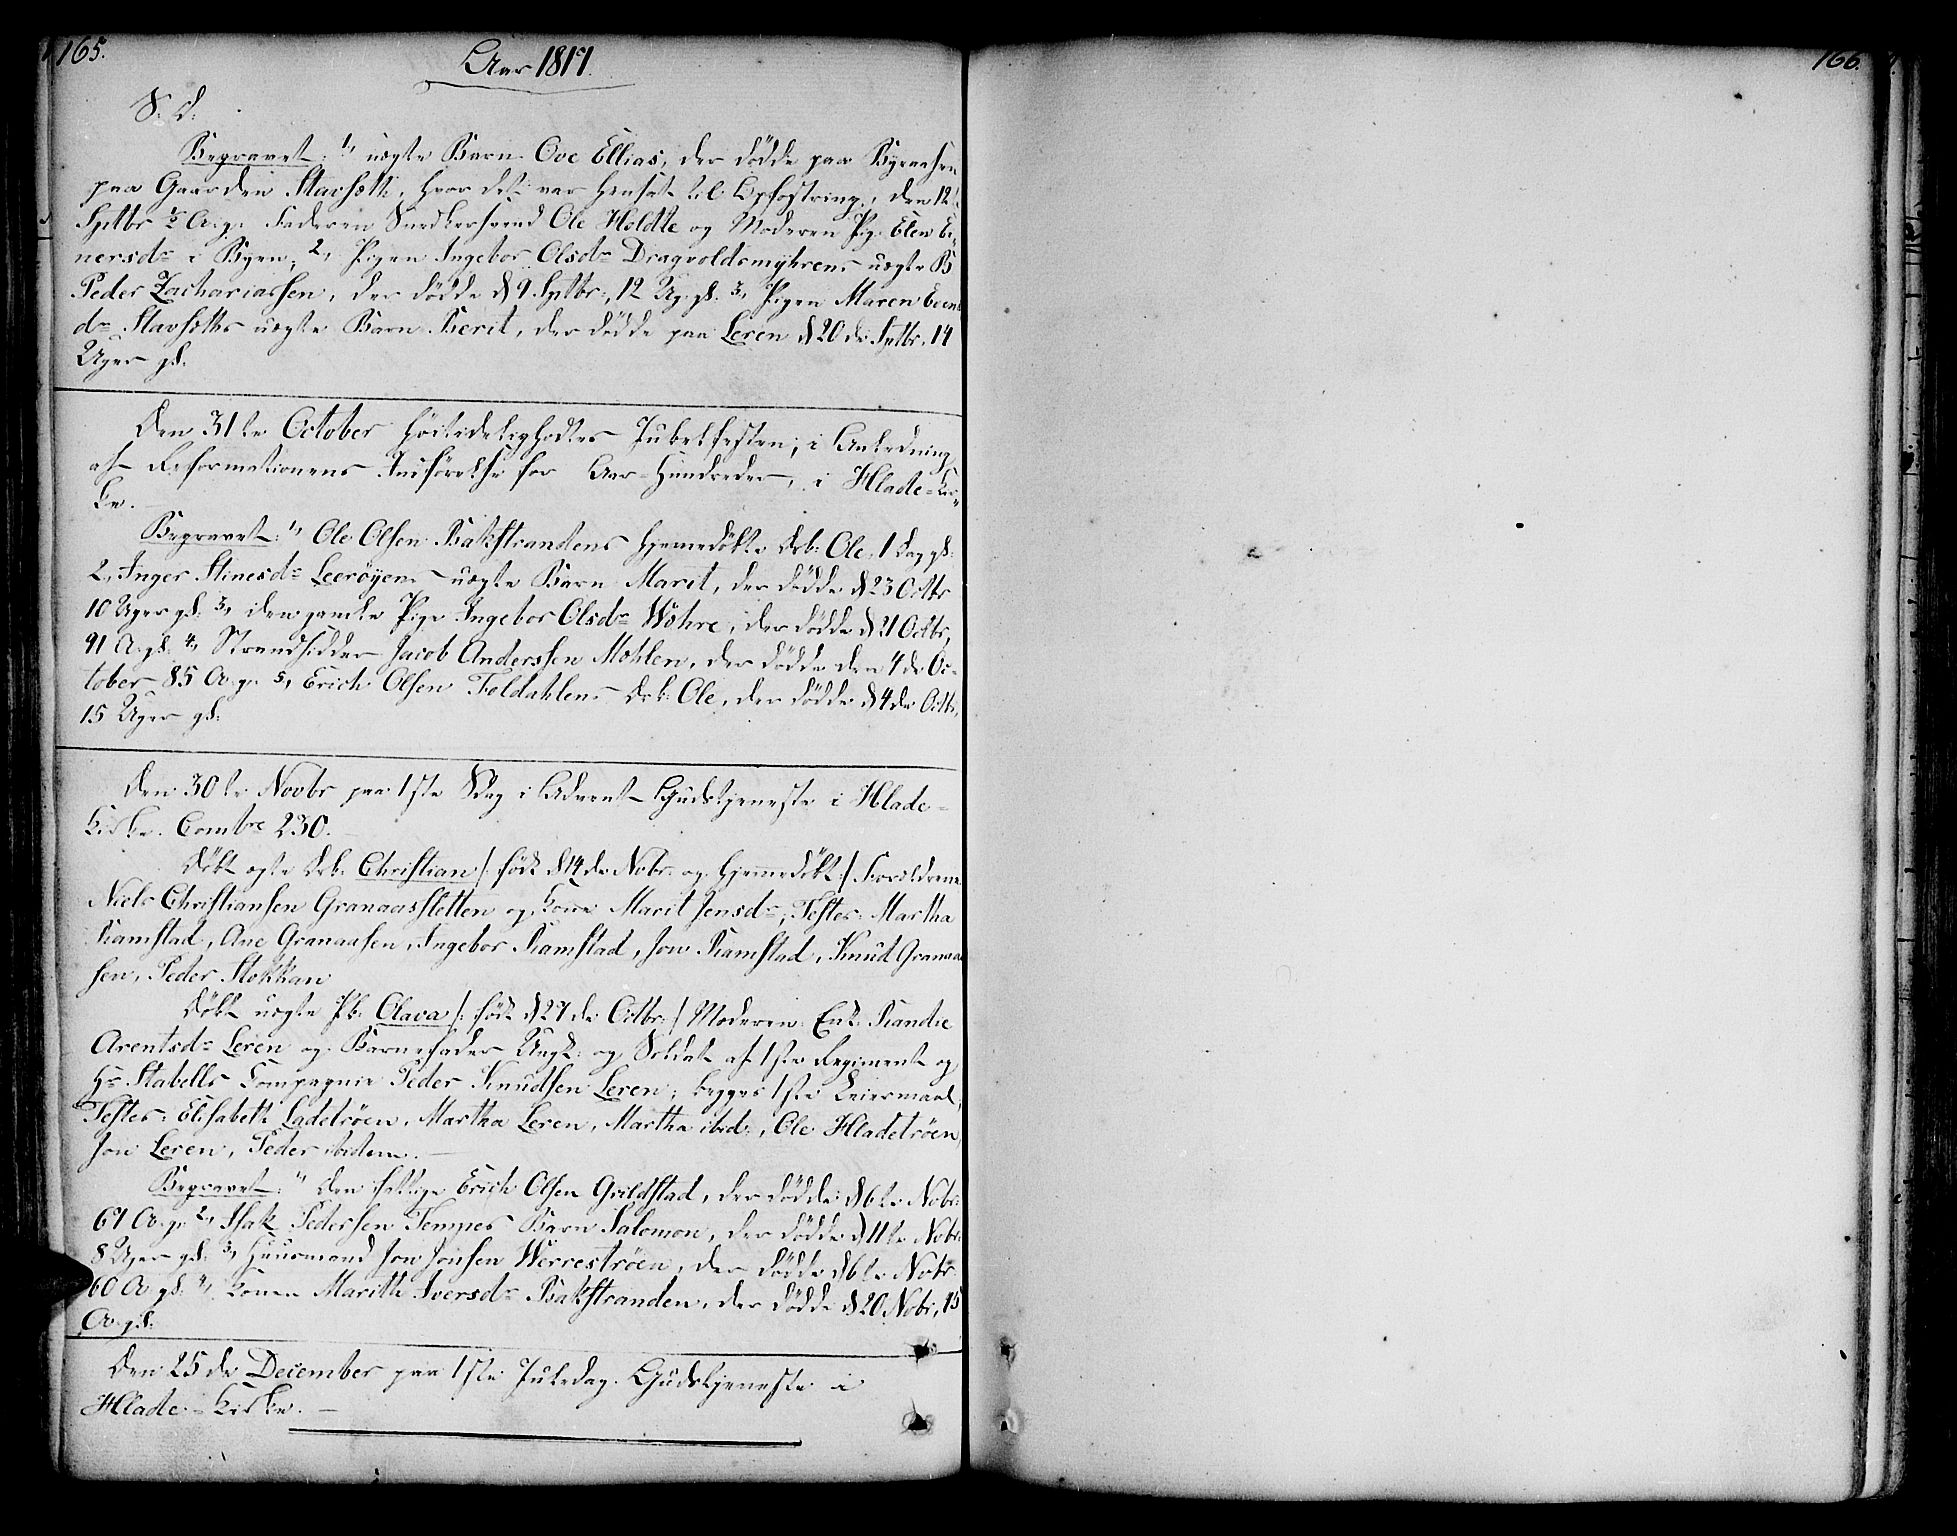 165.
Aar 1817.
166.
S: D:
Begravet: 1, uægte Barn Ove Ellias, der døde paa Byeaasen
paa Gaarden Stavsæth, hvor det var hensat til Opfostring, den 12te
Sptbr ½ A: g: Faderen Snedkersvend Ole Holdte og Moderen Pig: Elen Ei„
nersdr i Byen; 2, Pigen Ingebor Olsdr Dragvoldsmyhrens uægte B
Peder Zachariassen, der døde d 9 Sptbr:, 12 Ug: gl: 3, Pigen Maren Evens
dr Stavsæths uægte Barn Berit, der døde paa Leren d 20de Sptbr, 14
Uger gl:
Den 31te October høitideligholdtes Jubelfesten, i Anledning
af Reformationens Indførelse for Aar-Hundreder, i Hlade-Kir„
ke.
Begravet: 1, Ole Olsen Bakstrandens hjemedøbte Drb: Ole, 1 Dag gl:
2, Inger Stinesdr Leerøyens uægte Barn Marit, der døde d 23 Octbr
10 Uger gl: 3, den gamle Pige Ingebor Olsdr Wohre, der døde d 21 Octbr,
91 A: gl: 4, Strandsidder Jacob Anderssen Mohlen, der døde den 4de Oc-
tober 85 A: g: 5, Erich Olsen Foldahlens Drb: Ole, der døde d 4de Octbr,
15 Uger gl:
Den 30te Novbr paa 1ste Sdag i Advent Gudstjeneste i Hlade-
Kirke. Comtre 230.
Døbt ægte Drb. Christian /: født d 14de Nobr: og hjemmedøbt :/ Forældrene
Niels Christiansen Granaassletten og Kone Marit Jensdr, Test: Martha
Ramstad, Ane Granaasen, Ingebor Ramstad, Jon Ramstad, Knud Granaa
sen, Peder Stokkan
Døbt uægte Pb: Olava /: født d 27de Octbr: / Moderen: Enk: Randie
Arentsdr Leren og Barnefader Ungk: og Soldat af 1ste Regiment og
Hr Stabells Compagnie Peder Knudsen Leren; begges 1ste Leiermaal,
Testes: Elisabeth Ladetrøen, Martha Leren, Martha ibid:, Ole Hladetrøen,
Jon Leren, Peder ibidem. –
Begravet: 1, den fattige Erich Olsen Grildstad, der døde d 6te Nobr:
67 A: g: 2, Isak Pedersen Tempes Barn Salomon, der døde d 11te Nobr:
8 Uger gl: 3, Huusmand Jon Jonsen Werrestrøen, der døde d 6te Nobr
60 A: gl: 4, Konen Marith Iversdr Bakstranden, der døde d 20 Nobr, 75
A: gl:
Den 25de December paa 1ste Juledag Gudstjeneste i
Hlade-Kirke. –